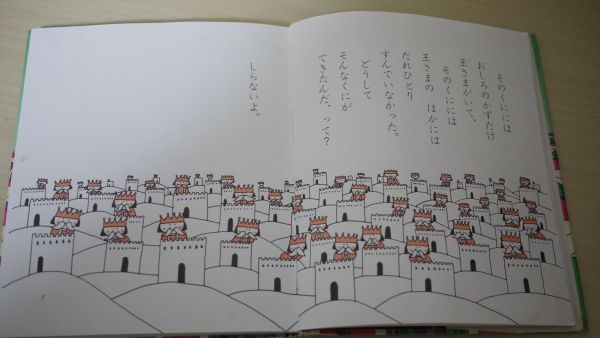 そのくにには
おしろのかずだけ
王さまがいて、
そのくにには
王さまの　ほかには
だれひとり
すんでいなかった。
どうして
そんなくにが
できたんだ、って？
しらないよ。